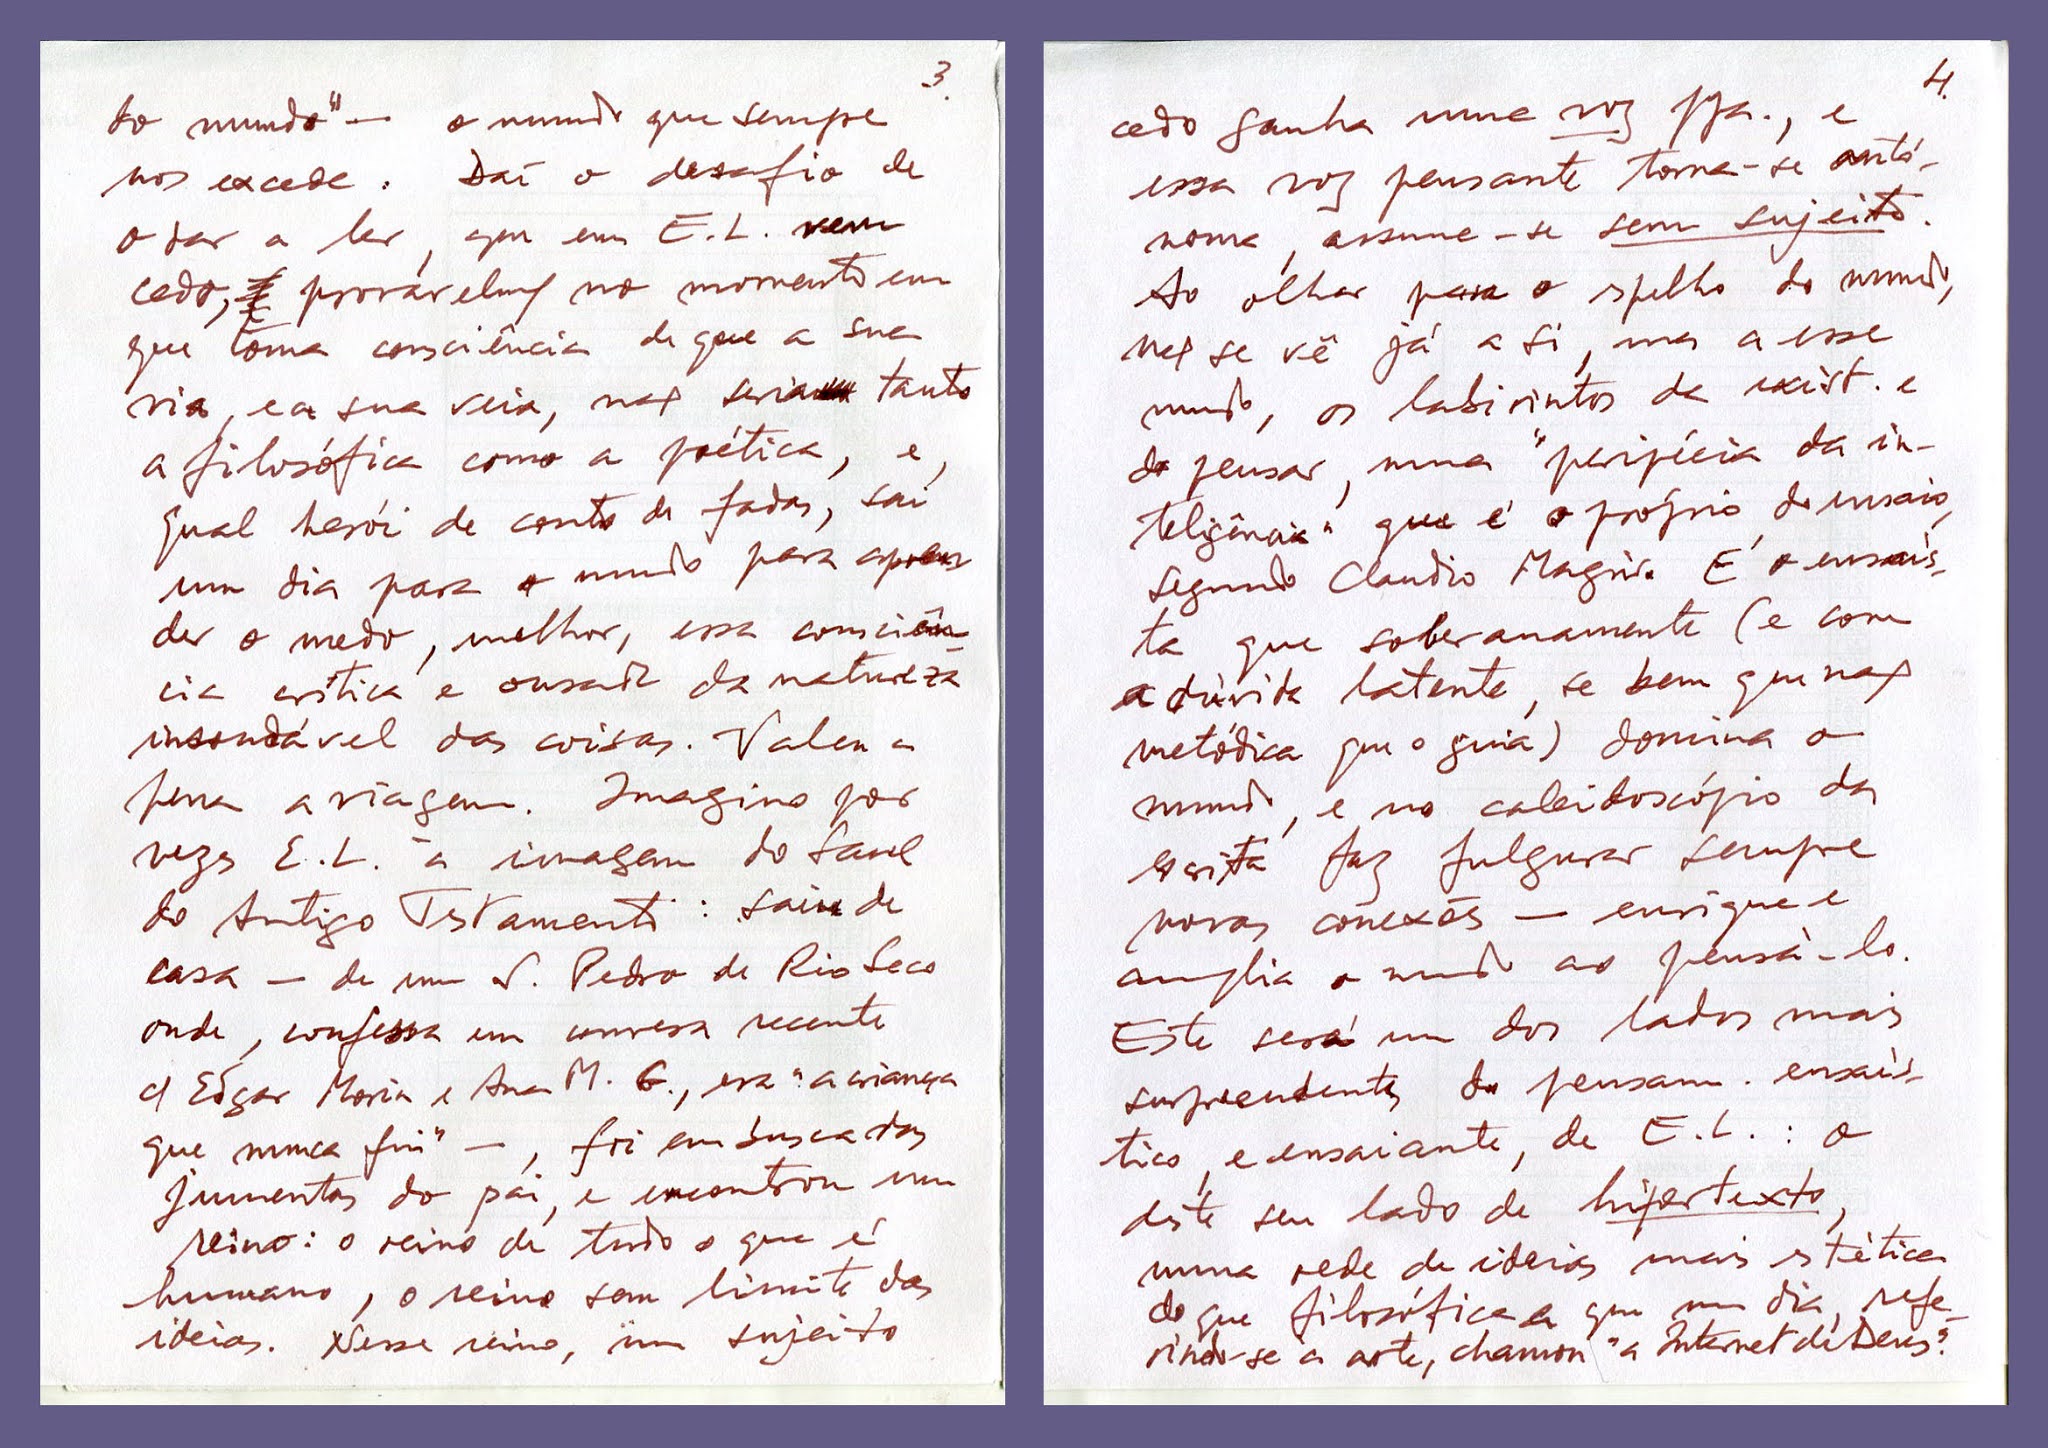 3.
do mundo" — o mundo que sempre
nos excede. Daí o desafio de
o dar a ler, que em E.L. vem
cedo, no momento em
que toma consciência de que a sua
via, e a sua veia, não seria tanto
a filosófica como a poética, e,
qual herói de conto de fadas, sai
um dia para o mundo para apren
der o medo, melhor, essa consciên-
cia crítica e ousada da natureza
insondável das coisas. Valeu a
pena a viagem. Imagino por
vezes E.L. à imagem do Saul
do Antigo Testamento: saiu de
casa — de um S. Pedro de Rio Seco
onde, confessa em conversa recente
c/ Edgar Morin e Ana M. G., era "a criança
que nunca fui" —, foi em busca das
jumentas do pai, e encontrou um
reino: o reino de tudo o que é
humano, o reino sem limite das
ideias. Nesse reino, um sujeito
4.
cedo ganha uma voz ppa., e
essa voz pensante torna-se autó-
noma, assume-se sem sujeito.
Ao olhar para o espelho do mundo,
não se vê já a si, mas a esse
mundo, os labirintos da exist. e
do pensar, numa "peripécia da in-
teligência" que é o próprio do ensaio,
segundo Claudio Magris. É o ensaís-
ta que soberanamente (e com
a dúvida latente, se bem que não
metódica que o guia) domina o
mundo, e no caleidoscópio da
escrita faz fulgurar sempre
novas conexões — enriquece e
amplia o mundo ao pensá-lo.
Este será um dos lados mais
surpreendentes do pensam. ensaís-
tico, e ensaiante, de E.L.: o
deste seu lado de hipertexto,
numa rede de ideias mais estética
do que filosófica a que um dia, refe-
rindo-se à arte, chamou "a Internet de Deus".